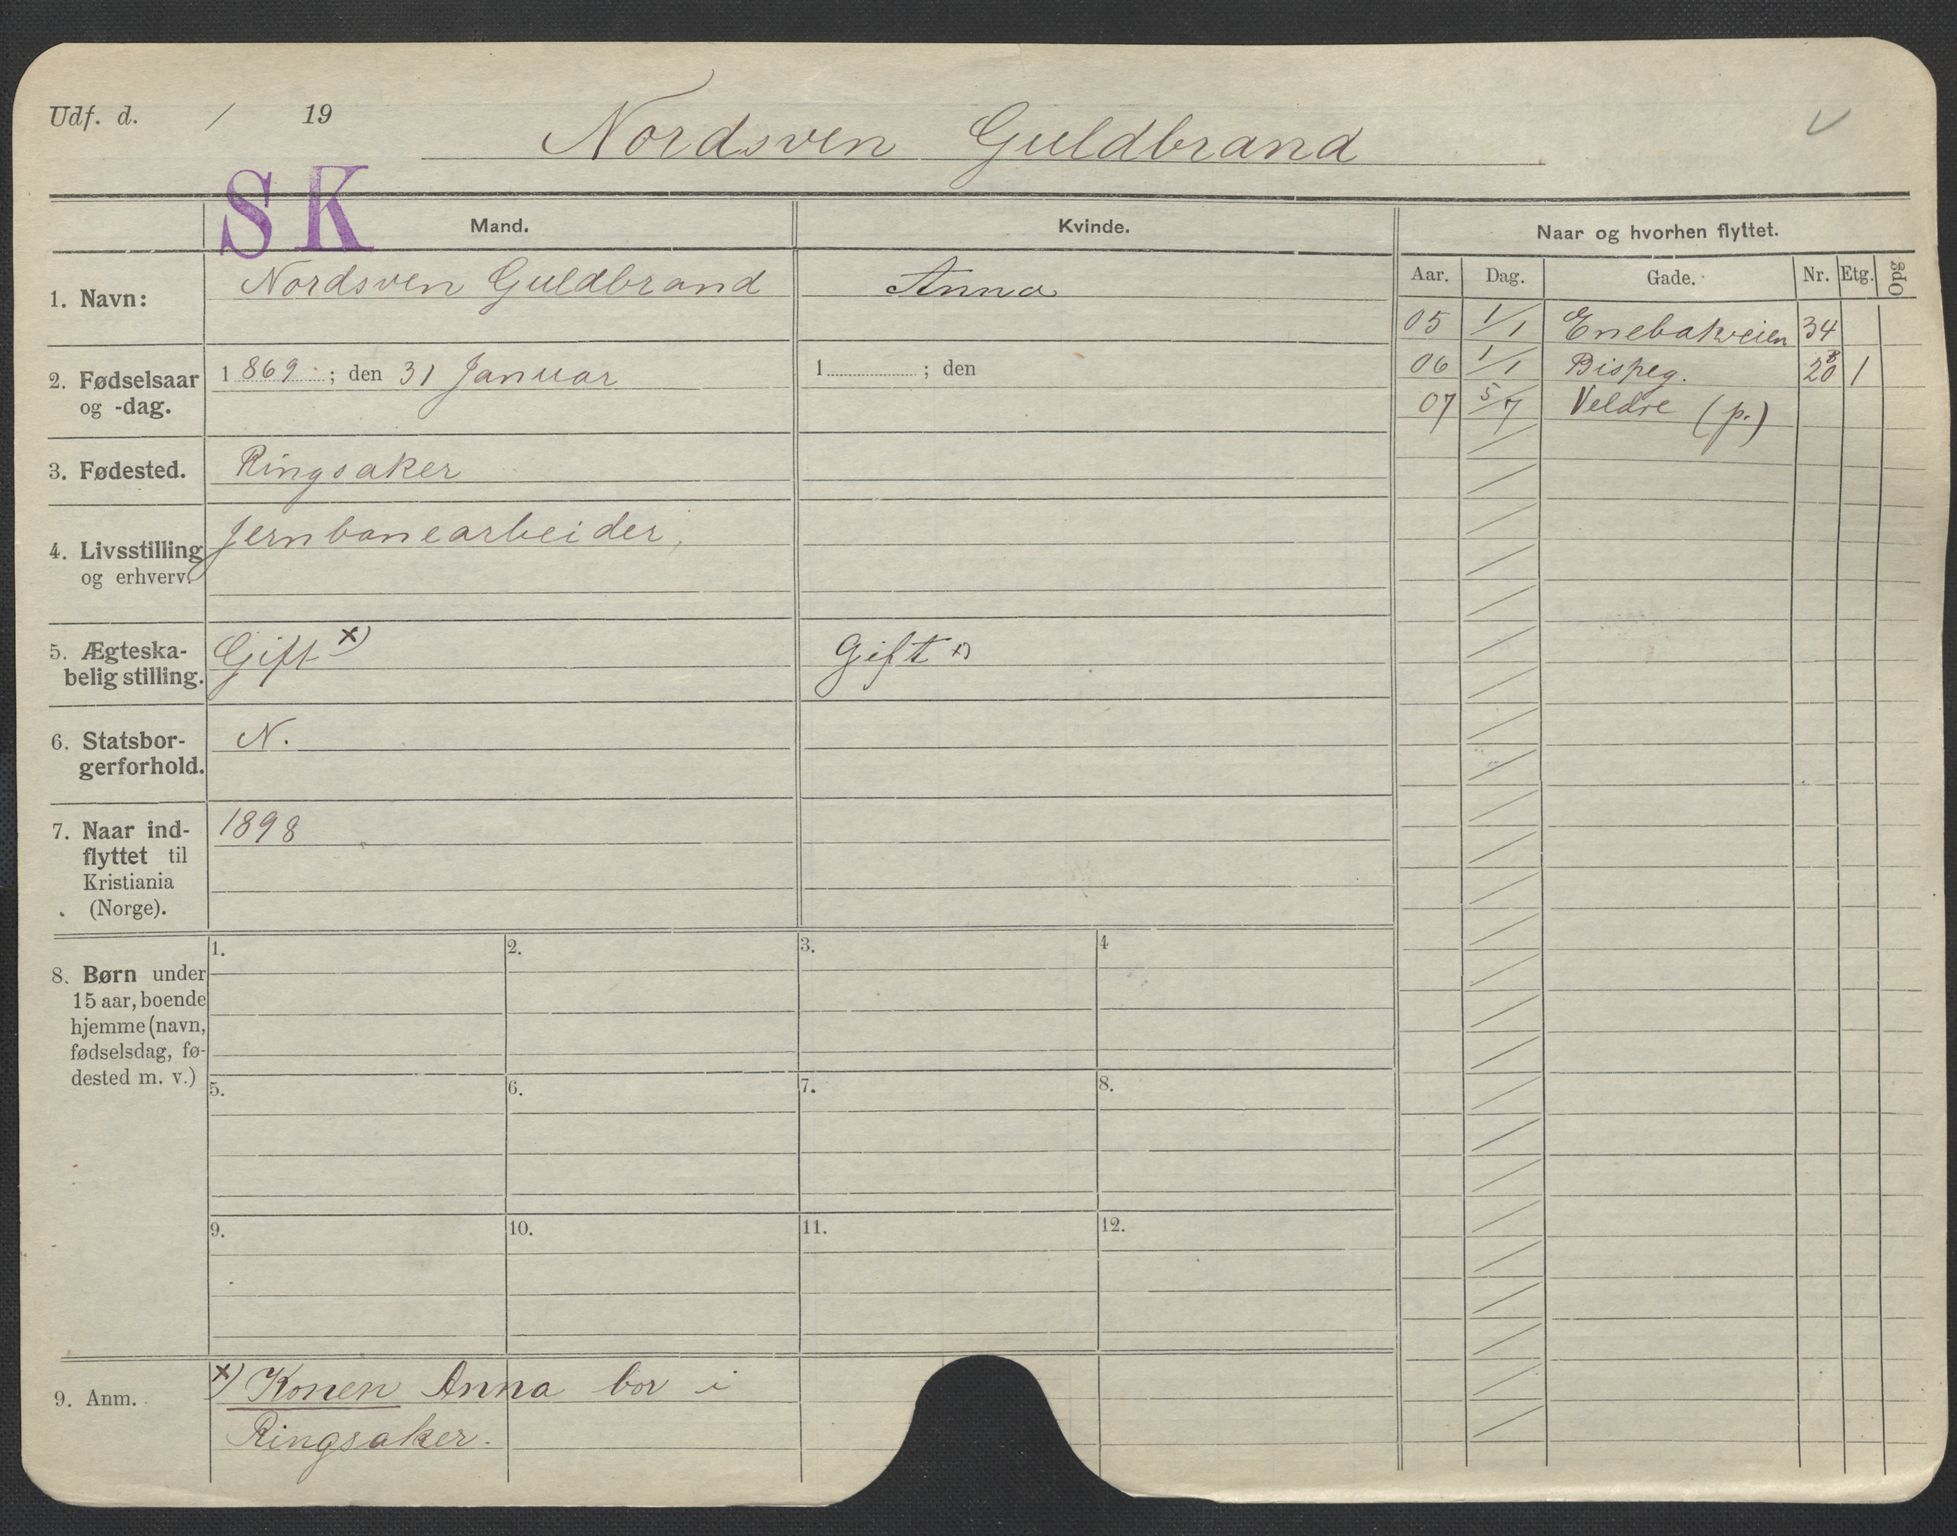 Udf. d. / 19
Nordsven Guldbrand
SK
Mand.
Kvinde.
Naar og hvorhen flyttet.
Aar. Dag. Gade. Nr. Etg. Opg
1. Navn: Nordsven Guldbrand Anna
05 1/1 Enebakveien 34
2. Fødselsaar og -dag. 1869 ; den 31 Januar 1 ; den
06 1/1 Bispeg. 20B 1
07 5/7 Veldre (p.)
3. Fødested. Ringsaker
4. Livsstilling og erhverv. Jernbanearbeider,
5. Ægteska-
belig stilling. Gift x) Gift x)
6. Statsbor-
gerforhold. N.
7. Naar ind-
flyttet til
Kristiania
(Norge). 1898
8. Børn under
15 aar, boende
hjemme (navn,
fødselsdag, fø-
dested m. v.)
1. 2. 3. 4
5. 6. 7. 8.
9. 10. 11. 12.
9. Anm. x) Konen Anna bor i
Ringsaker.